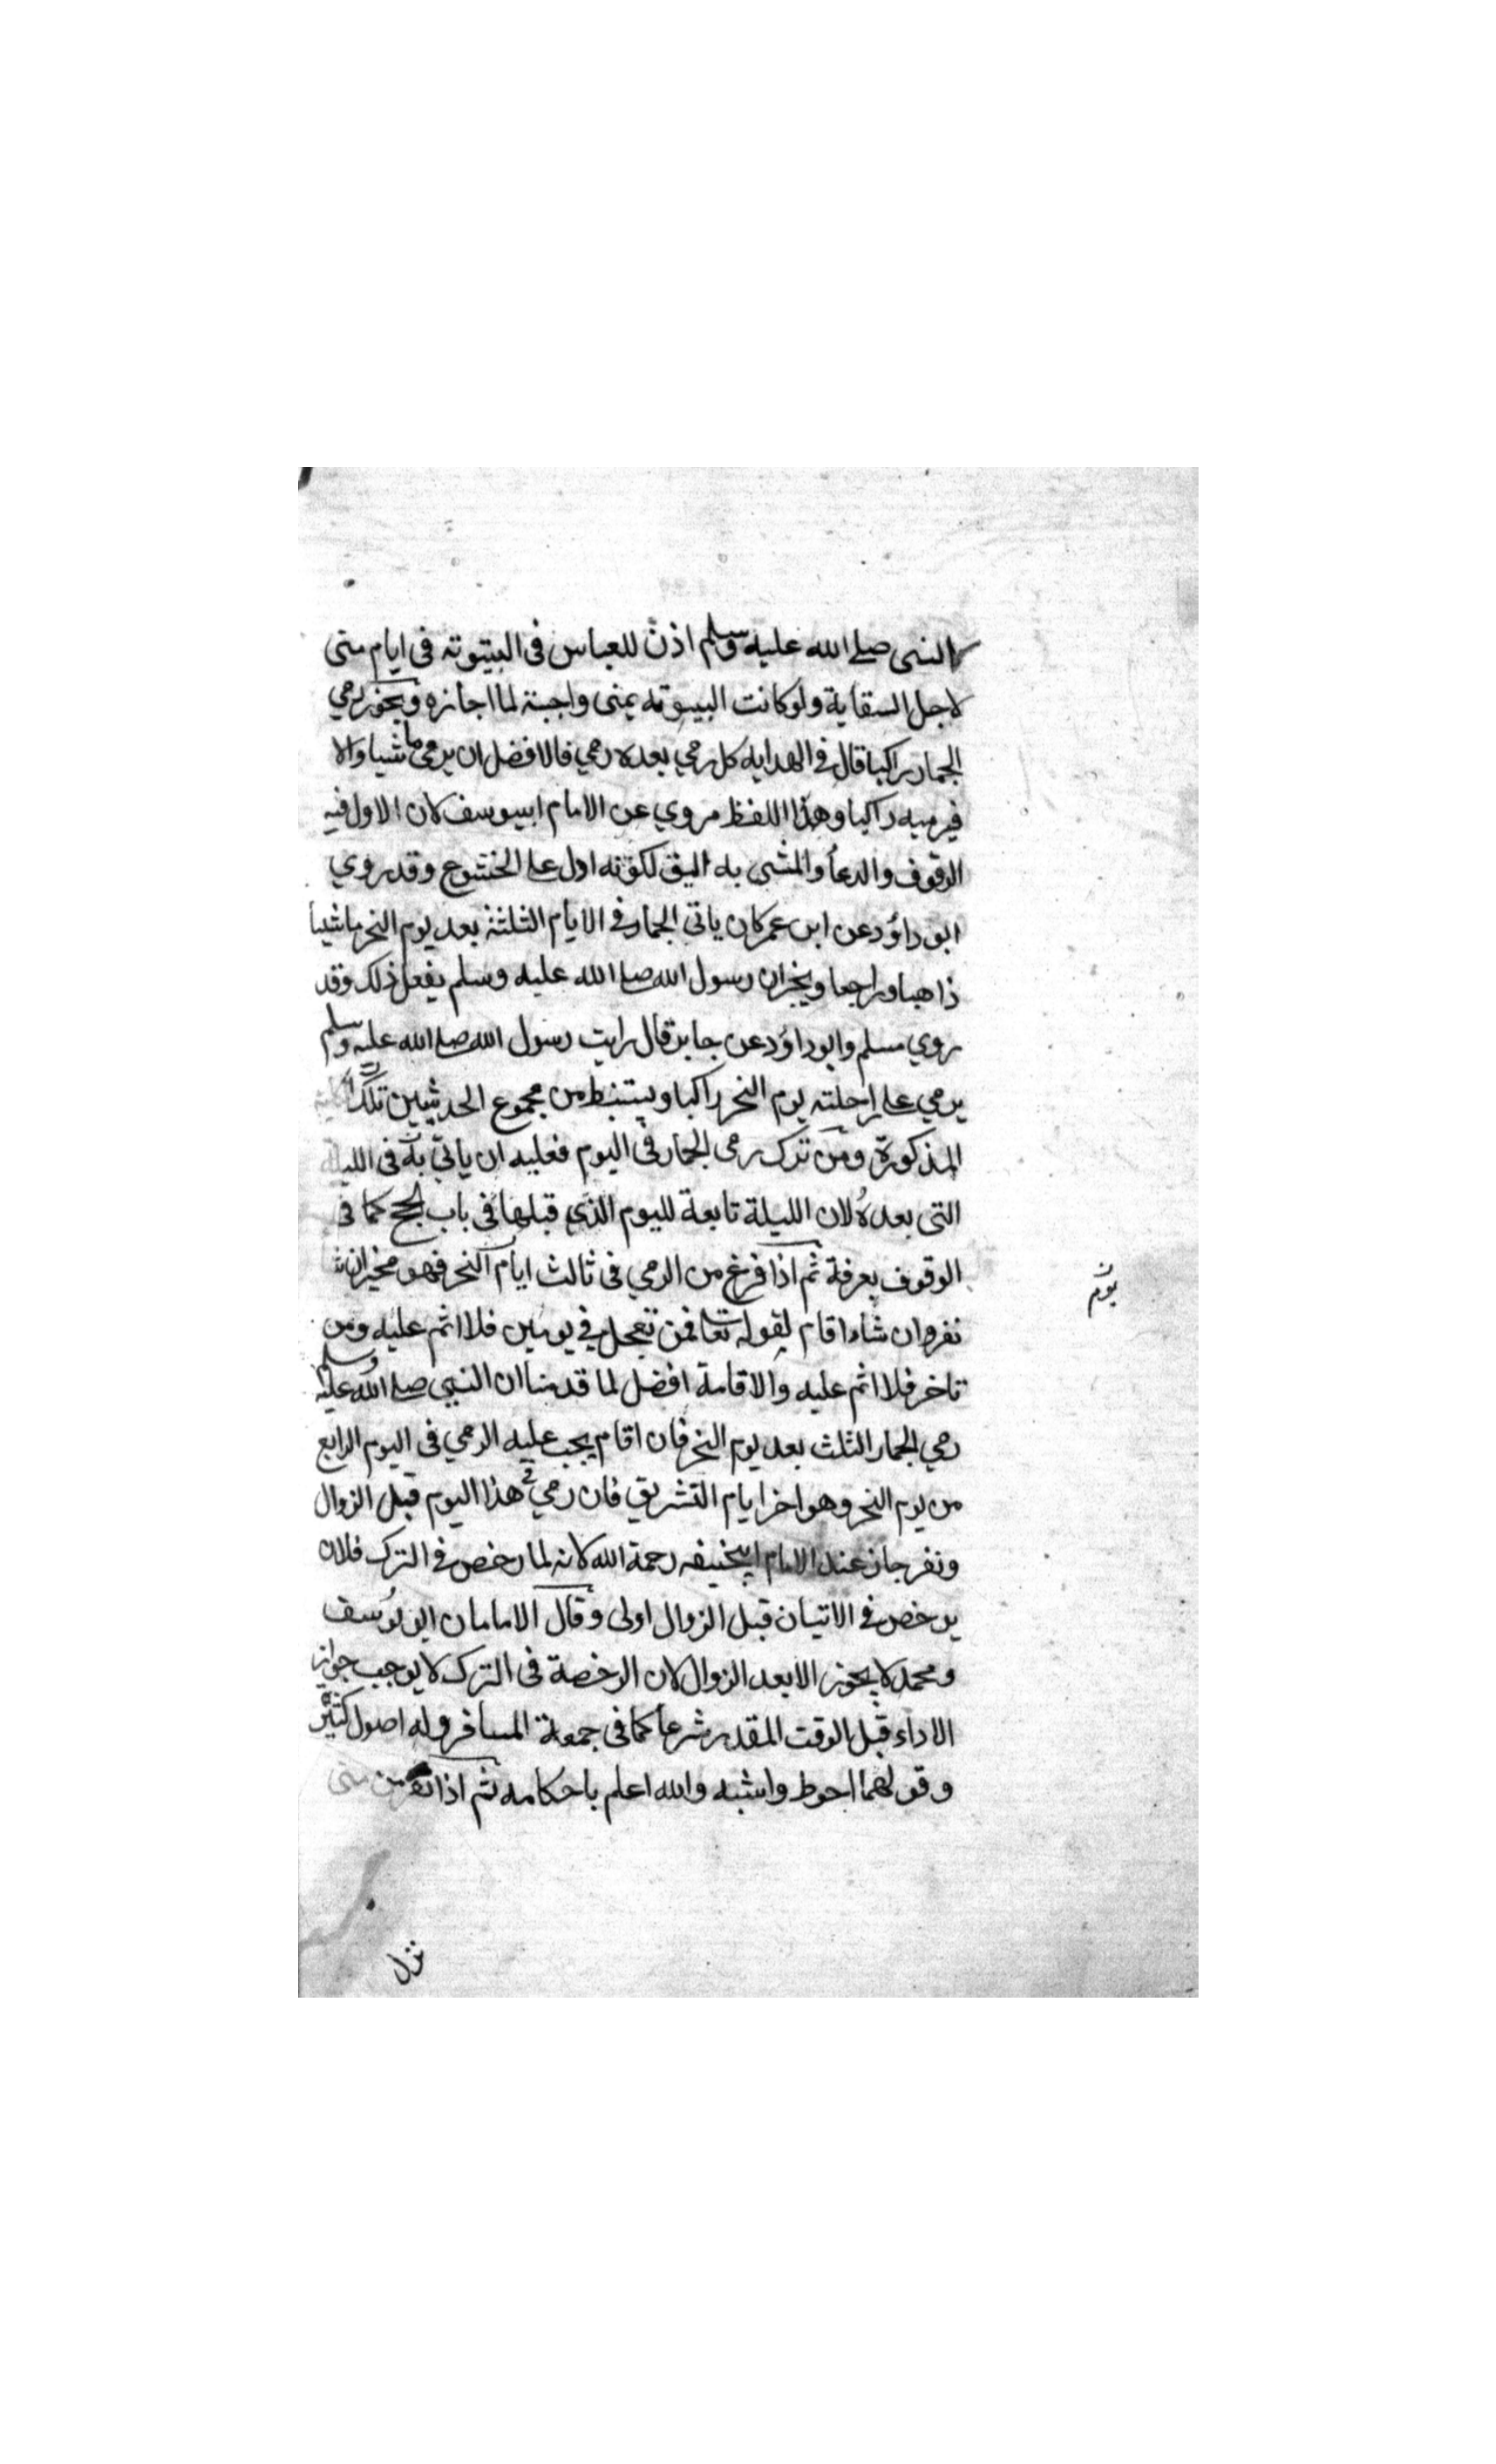 النبى صلے الله عليه وسلم اذن للعباس فى البيتوته فى ايام منى
لاجل السقاية ولو كانت البيتوته بمنى واجبة لما اجازه ويجوز رمي
الجمار راكبا قال فى الهدايه كل رمي بعده رمي فالافضل ان يرمى ماشيا والا
فيرميه راكبا وهذا اللفظ مروي عن الامام ابيوسف لان الاول فيه
الوقوف والدعأ والمشى به اليق لكونه ادل على الخشوع وقد روي
ابو داؤد عن ابن عمر كان ياتى الجمار فى الايام الثلثة بعد يوم النحر ماشيا
ذاهبا وراجعا ويخبر ان رسول الله صلے الله عليه وسلم يفعل ذلك وقد
روي مسلم وابو داؤد عن جابر قال رايت رسول الله صلے الله عليه وسلم
يرمي على راحلته يوم النحر راكبا ويستنبط من مجموع الحديثين تلك
المذكورة ومن ترك رمى الجمار فى اليوم فعليه ان ياتى به فى الليلة
التى بعده لان الليلة تابعة لليوم الذي قبلها فى باب الحج كما فى
الوقوف بعرفة ثم اذا فرغ من الرمي فى ثالث ايام النحر فهو مخير ان شا
نفر وان شاء اقام لقوله تعا فمن تعجل فى يومين فلا اثم عليه ومن
تاخر فلا اثم عليه والاقامة افضل لما قدمنا ان النبى صلے الله عليه وسلم
رمي الجمار الثلث بعد يوم النحر فان اقام يجب عليه الرمي فى اليوم الرابع
من يوم النحر وهو اخر ايام التشريق فان رمي فى هذا اليوم قبل الزوال
ونفر جاز عند الامام ابيحنيفه رحمة الله لانه لما رخص فى الترك فلان
يرخص فى الاتيان قبل الزوال اولى وقال الامامان ابو يوسف
ومحمد لا يجوز الا بعد الزوال لان الرخصة فى الترك لا يوجب جواز
الاداء قبل الوقت المقدر شرعا كما فى جمعة المسافر وله اصول كثيرة
وقولهما احوط واشبه والله اعلم باحكامه ثم اذا نفر من منى
نزل